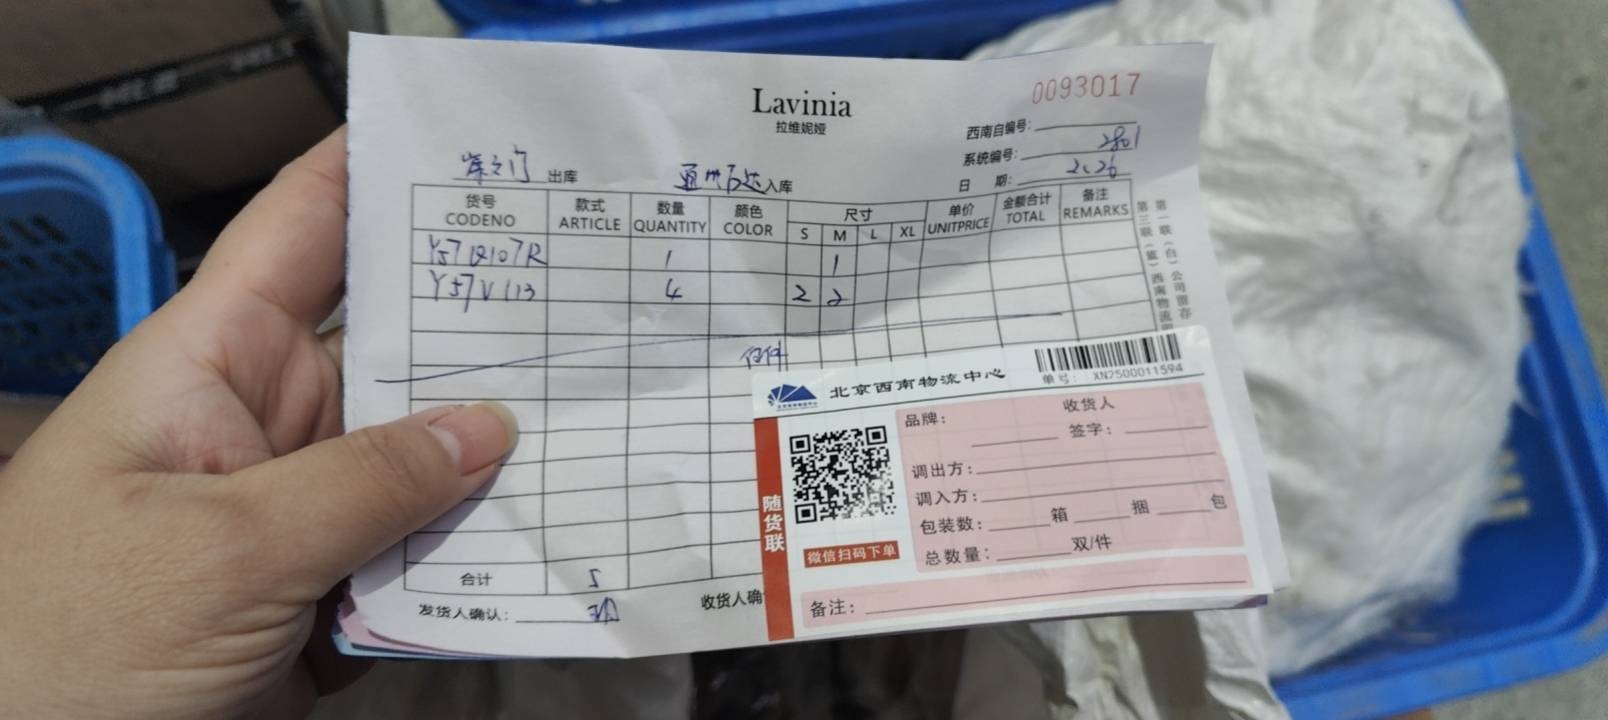 Lavinia
拉维妮娅
0093017
西南自编号:
系统编号: 2801
日 期: 2.26
崇文门 出库 通州万达 入库
货号 款式 数量 颜色 尺寸 单价 金额合计 备注
CODENO ARTICLE QUANTITY COLOR S M L XL UNITPRICE TOTAL REMARKS
1 1
Y57V113 4 2 2
伍件
合计 5
发货人确认:
收货人确
第一联(白)公司留存
第三联(蓝)西南物流
北京西南物流中心
单号: XN2500011594
随货联
微信扫码下单
品牌: 收货人
签字:
调出方:
调入方:
包装数: 箱 捆 包
总数量: 双/件
备注: